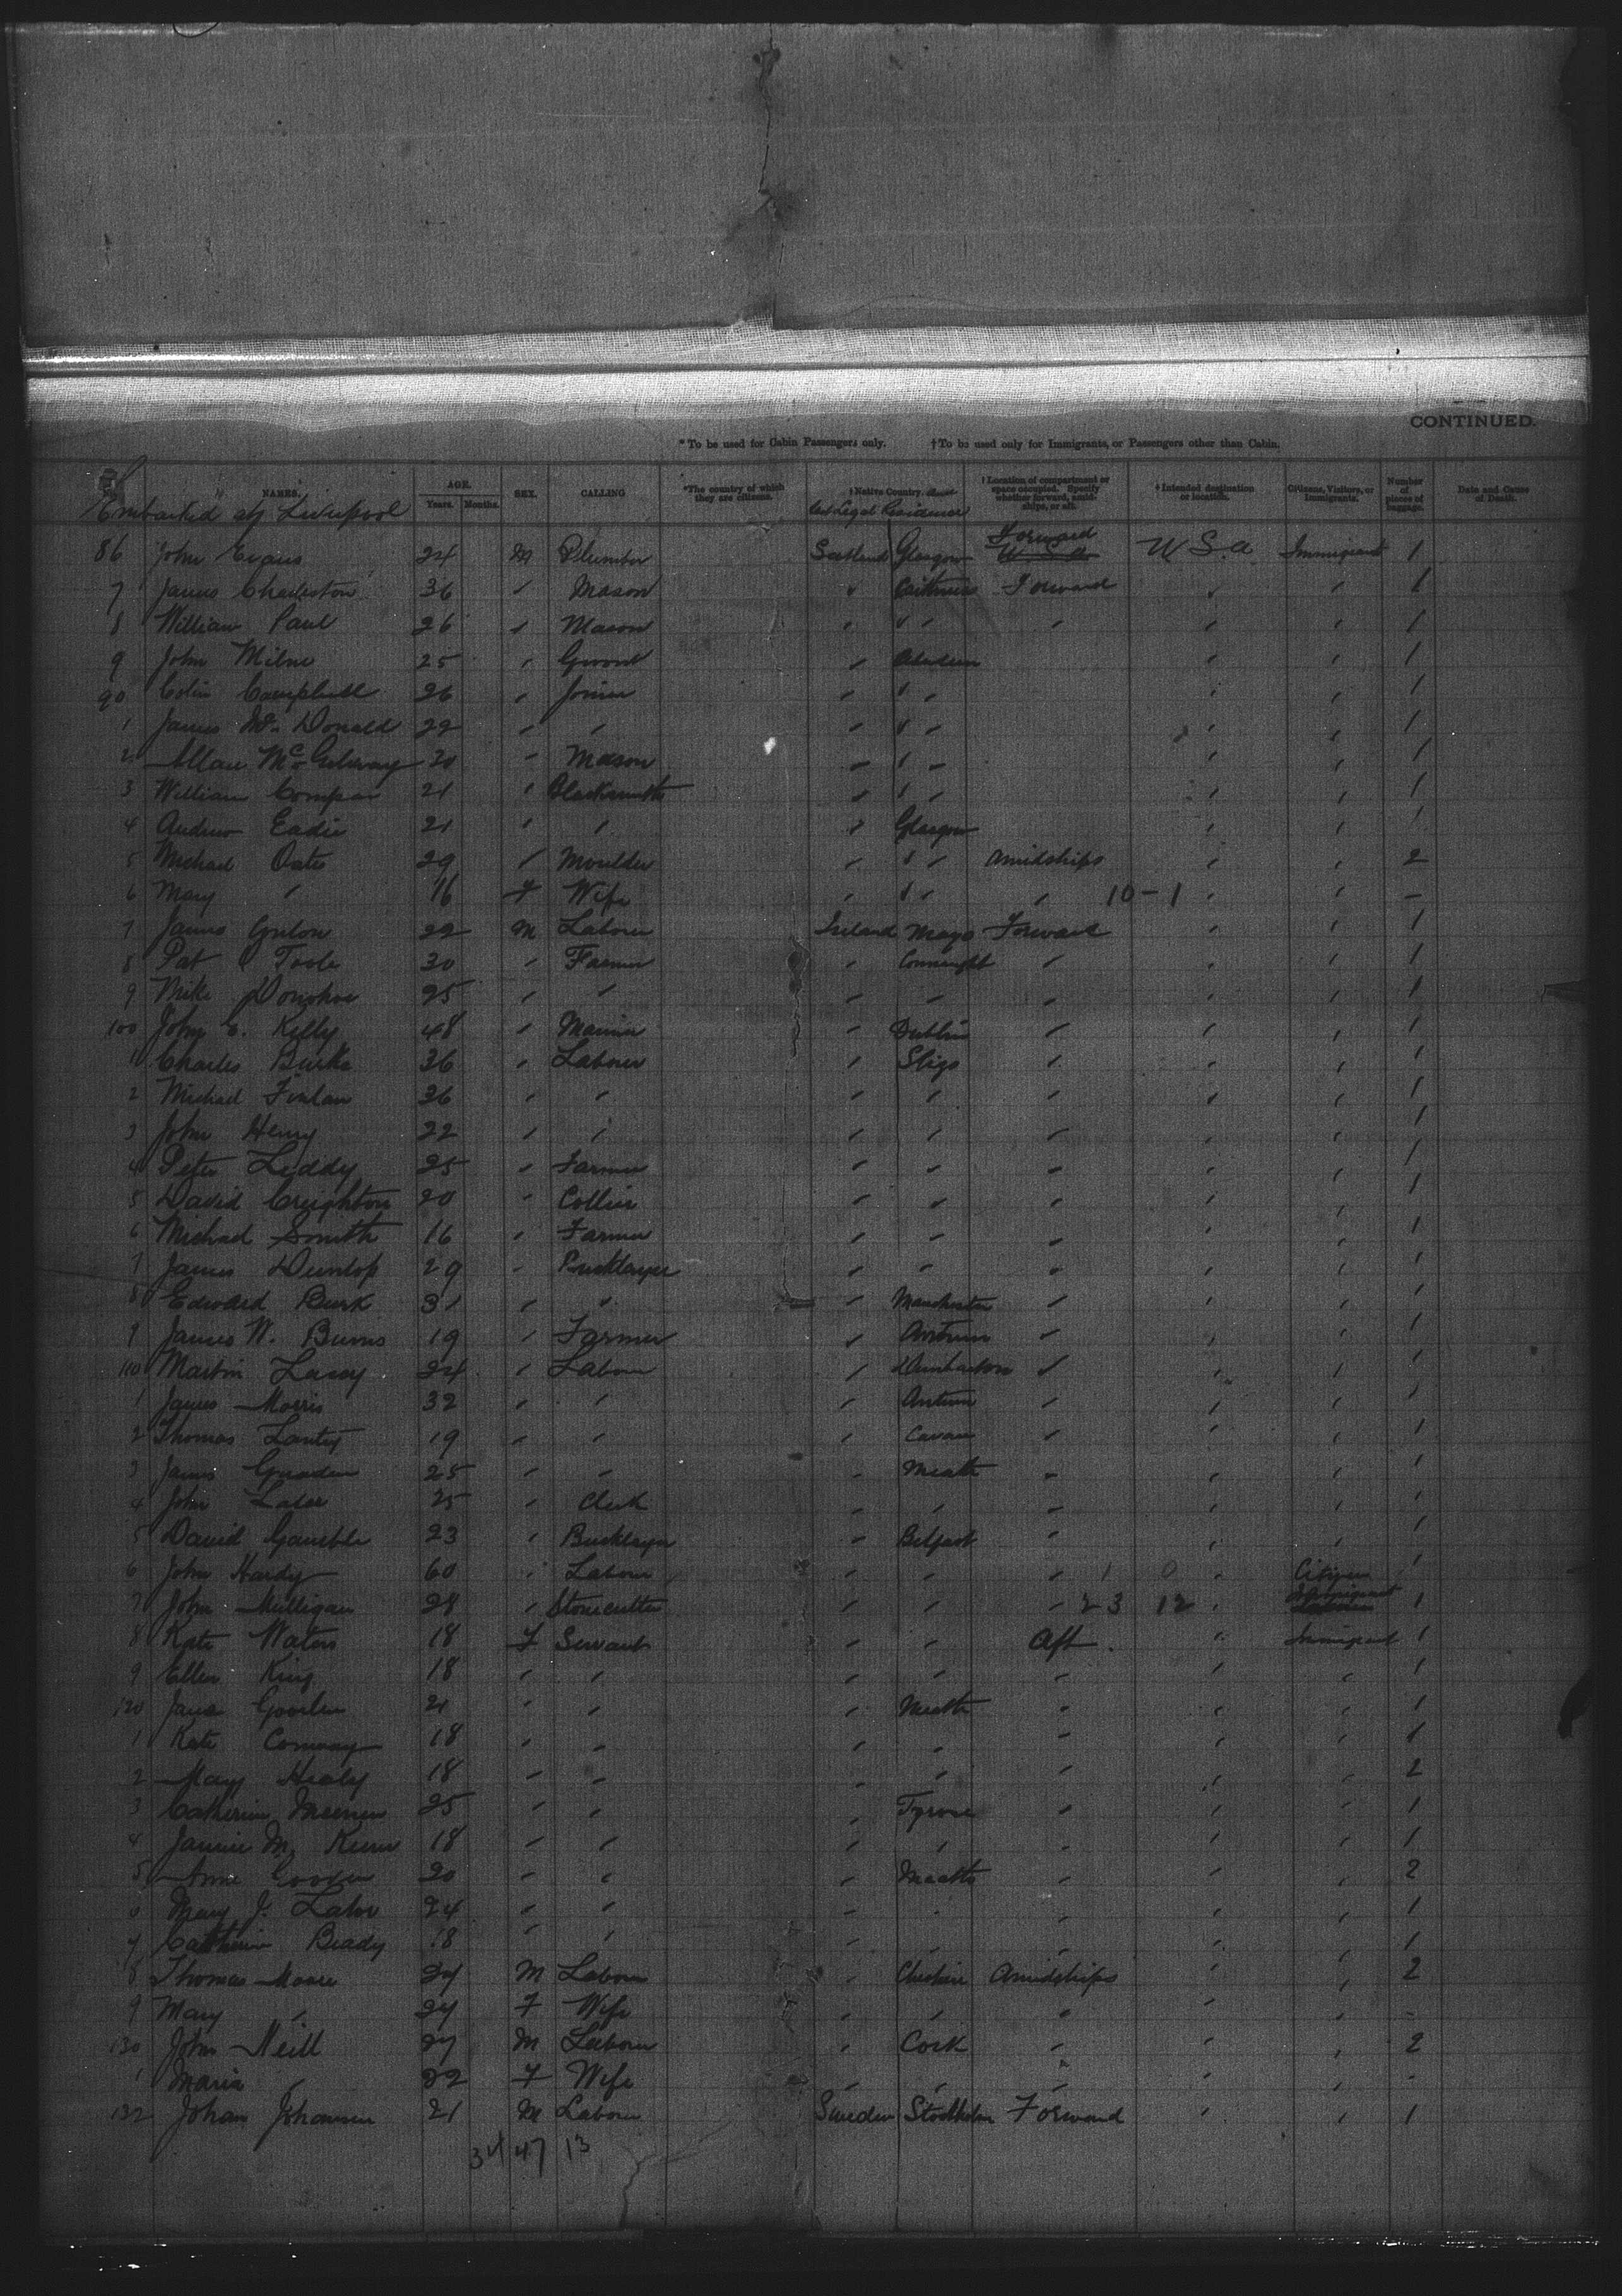 CONTINUED.
* To be used for Cabin Passengers only. † To be used only for Immigrants, or Passengers other than Cabin.
No. NAMES. AGE. Years. Months. SEX. CALLING *The country of which they are citizens. †Native Country. †Location of compartment or space occupied. Specify whether forward, amidships, or aft. †Intended destination or location. Citizens, Visitors, or Immigrants. Number of pieces of baggage. Date and Cause of Death.
Embarked at Liverpool Last Legal Residence
86 John Evans 24 M Plumber Scotland Glasgow Forward U S a U S. a Immigrant 1
7 James Charleston 36 " Mason " Caithness Forward " " 1
8 William Paul 26 " Mason " " " " " " 1
9 John Milne 25 " " Aberdeen " " 1
90 Colin Campbell 26 " Joiner " " " " " 1
1 James Mc Donald 22 " " " " " " " 1
2 Allan Mc 20 " Mason " " " " " 1
3 William 21 " Blacksmith " " " " " 1
4 Andrew Eadie 21 " " " Glasgow " " 1
5 Michael Oates 29 " Moulder " " " Amidships " " 2
6 Mary " 16 F Wife " " " " 10-1 " " -
7 James 22 M Labourer Ireland Mayo Forward " " 1
8 Pat Toole 30 " Farmer " Connaught " " " 1
9 Mike Donohoe 25 " " " " " " " 1
100 John E. Kelly 48 " " Dublin " " " 1
1 Charles Burke 36 " Labourer " Sligo " " " 1
2 Michael Finlan 36 " " " " " " " 1
3 John Henry 22 " " " " " " " 1
4 Peter Leddy 25 " Farmer " " " " " 1
5 David Creighton 20 " Collier " " " " " 1
6 Michael Smith 16 " Farmer " " " " " 1
7 James Dunlop 29 " Bricklayer " " " " " 1
8 Edward Burk 31 " " " Manchester " " " 1
9 James W. Burns 19 " Farmer " Antrim " " " 1
110 Martin Lacey 24 " Labour " Dumbarton " " " 1
1 James Morris 32 " " " Antrim " " " 1
2 Thomas 19 " " " Cavan " " " 1
3 James 25 " " " Meath " " " 1
4 John Lalor 25 " Clerk " " " " " 1
5 David Gamble 23 " Bricklayer " Belfast " " " 1
6 John Hardy 60 " Labour " " " 1 0 " Citizen 1
7 John Milligan 28 " Stonecutter " " " 23 12 " Immigrant 1
8 Kate Waters 18 F Servant " " Aft " Immigrant 1
9 Ellen King 18 " " " " " " " 1
120 Jane 21 " " " Meath " " " 1
1 Kate Conway 18 " " " " " " " 1
2 May Healy 18 " " " " " " " 2
3 Catherine 25 " " " Tyrone " " " 1
4 Jannie M. 18 " " " " " " " 1
5 Anne 20 " " " Meath " " " 2
6 Mary J. Lalor 24 " " " " " " " 1
7 Catherine Brady 18 " " " " " " " 1
8 Thomas Moore 24 M Labour " Cheshire Amidships " " 2
9 Mary " 24 F Wife " " " " " -
130 John Neill 27 M Labour " Cork " " " 2
1 Maria " 22 F Wife " " " " " -
132 Johan Johansen 21 M Labour Sweden Stockholm Forward " " 1
34 47 13